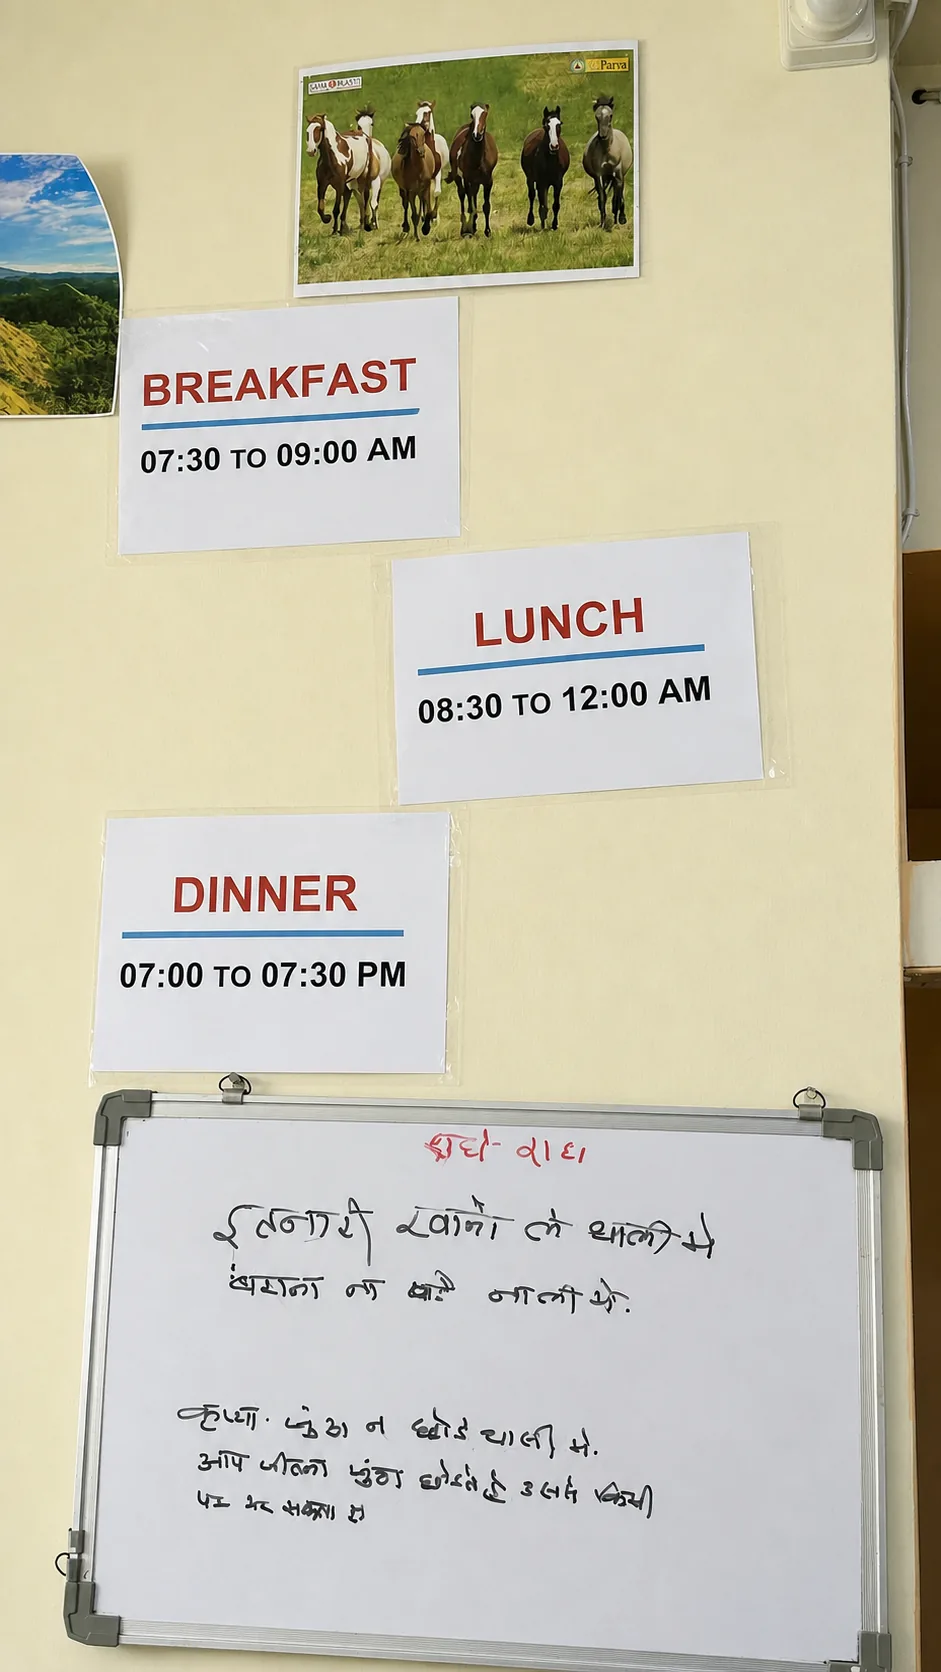 Parva
BREAKFAST
07:30 TO 09:00 AM
LUNCH
08:30 TO 12:00 AM
DINNER
07:00 TO 07:30 PM
राधे-राधे
इतना ही खाना ले थाली मे
बहाना ना पड़े नाली मे.
कृप्या. जुंठा न छोडे थाली मे.
आप जीतना जुंठा छोडते है उससे किसी
पेट भर सकता है